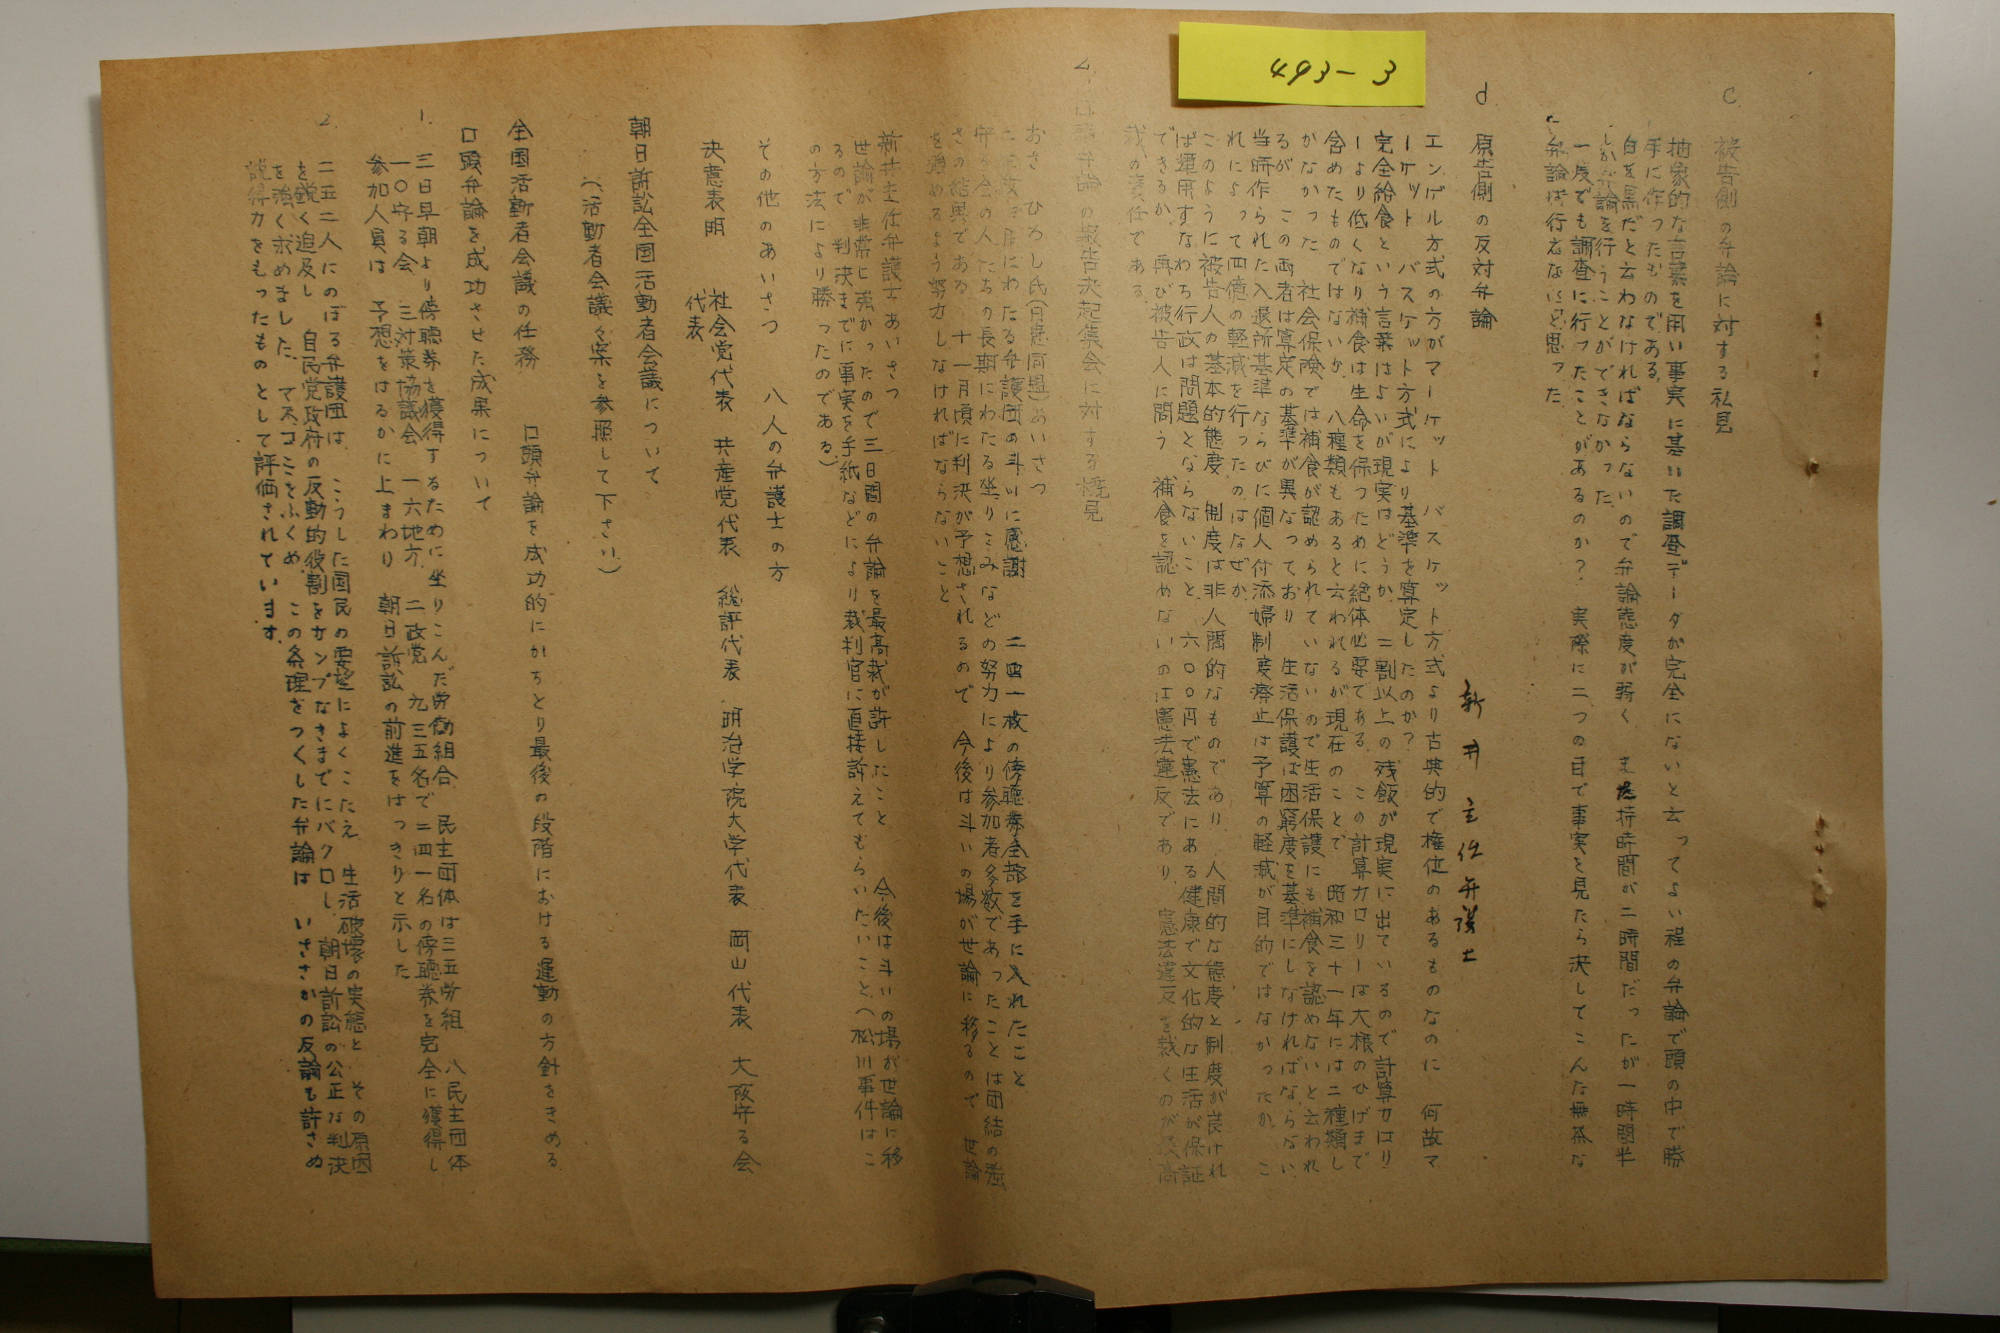 493-3
C 被告側の弁論に対する私見
抽象的な言葉を用い事実に基いた調査データが完全にないと云ってよい程の弁論で頭の中で勝
手に作ったものである。
白を黒だと云わなければならないので弁論態度が弱く 又 持時間が二時間だったが一時間半
しか弁論を行うことができなかった。
一度でも調査に行ったことがあるのか? 実際に二つの目で事実を見たら決してこんな無茶な
弁論は行えないと思った。
d 原告側の反対弁論 新井主任弁護士
エンゲル方式の方がマーケット バスケット方式より古典的で権位のあるものなのに 何故マ
ーケット バスケット方式により基準を算定したのか?
完全給食という言葉はよいが現実はどうか、二割以上の残飯が現実に出ているので計算カロリ
ーより低くなり補食は生命を保つために絶体必要である この計算カロリーは大根のひげまで
含めたものではないか、八種類もあると云われるが現在のことで 昭和三十一年には二種類し
かなかった 社会保険では補食が認められていないので生活保護にも補食を認めないと云われ
るが この両者は算定の基準が異なっており 生活保護は困窮度を基準にしなければならない、
当時作られた入退所基準ならびに個人付添婦制度廃止は予算の軽減が目的ではなかったか、こ
れによって四億の軽減を行ったのはなぜか、
このように被告人の基本的態度 制度は非人間的なものであり 人間的な態度と制度が良けれ
ば運用すなわち行政は問題とならないこと、六〇〇円で憲法にある健康で文化的な生活が保証
できるか、再び被告人に問う 補食を認めないのは憲法違反であり、憲法違反を裁くのが最高
裁の責任である。
4 口頭弁論の報告決起集会に対する概見
おさ ひろし氏(月患同盟)あいさつ
にわたる弁護団の斗いに感謝 二四一枚の傍聴券全部を手に入れたこと
守る会の人たちの長期にわたる坐りこみなどの努力により参加者多数であったことは団結の強
さの結果である、十一月頃に判決が予想されるので 今後は斗いの場が世論に移るので 世論
を強めるよう努力しなければならないこと
新井主任弁護士あいさつ
世論が非常に強かったので三日間の弁論を最高裁が許したこと 今後は斗いの場が世論に移
るので 判決までに事実を手紙などにより裁判官に直接訴えてもらいたいこと、(松川事件はこ
の方法により勝ったのである)
その他のあいさつ 八人の弁護士の方
決意表明 社会党代表 共産党代表 総評代表 明治学院大学代表 岡山代表 大阪守る会
代表
朝日訴訟全国活動者会議について
(活動者会議々案を参照して下さい)
全国活動者会議の任務 口頭弁論を成功的にかちとり最後の段階における運動の方針をきめる
口頭弁論を成功させた成果について
1. 三日早朝より傍聴券を獲得するために坐りこんだ労働組合、民主団体は三五労組 八民主団体
一〇守る会 三対策協議会 一六地方 二政党 九三五名で二四一名の傍聴券を完全に獲得し
参加人員は 予想をはるかに上まわり 朝日訴訟の前進をはっきりと示した
2. 二五二人にのぼる弁護団は、こうした国民の要望によくこたえ、生活破壊の実態と その原因
を鋭く追及し 自民党政府の反動的役割をカンプなきまでにバクロし 朝日訴訟の公正な判決
を強く求めました。マスコミをふくめ、この条理をつくした弁論は いささかの反論も許さぬ
説得力をもったものとして評価されています。